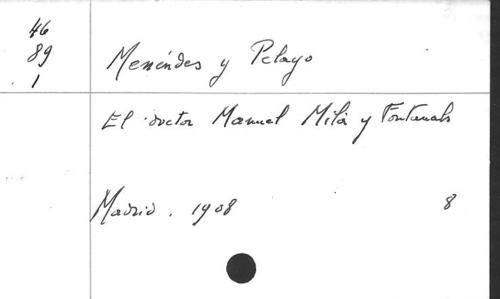 46
89
1
Menéndes y Pelayo
El doctor Manuel Milá y Fontanals
Madrid. 1908
8